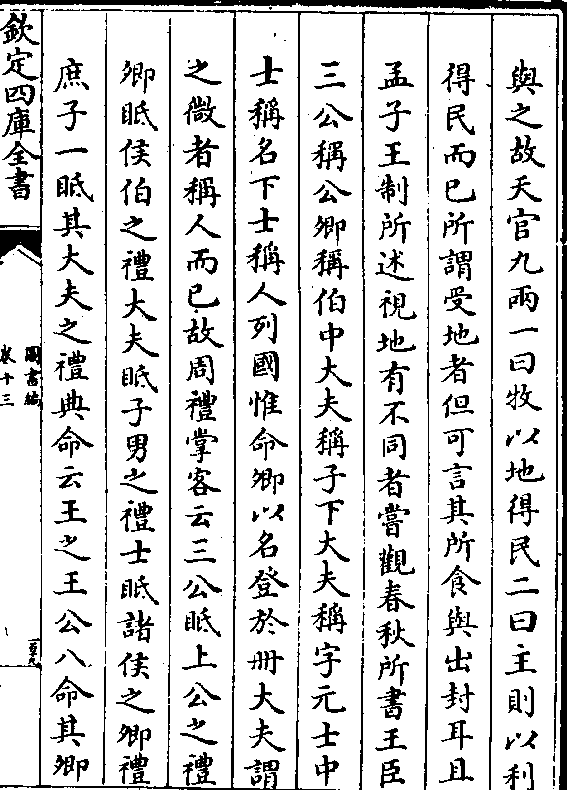 與之故天官九兩一曰牧以地得民二曰主則以利
得民而已所謂受地者但可言其所食與出封耳且
孟子王制所述視地有不同者嘗觀春秋所書王臣
三公稱公卿稱伯中大夫稱子下大夫稱字元士中
士稱名下士稱人列國惟命卿以名登於冊大夫謂
之微者稱人而已故周禮掌客云三公眡上公之禮
卿眡侯伯之禮大夫眡子男之禮士眡諸侯之卿禮
庶子一眡其大夫之禮典命云王之王公八命其卿
欽定四庫全書
圖書編
卷十三